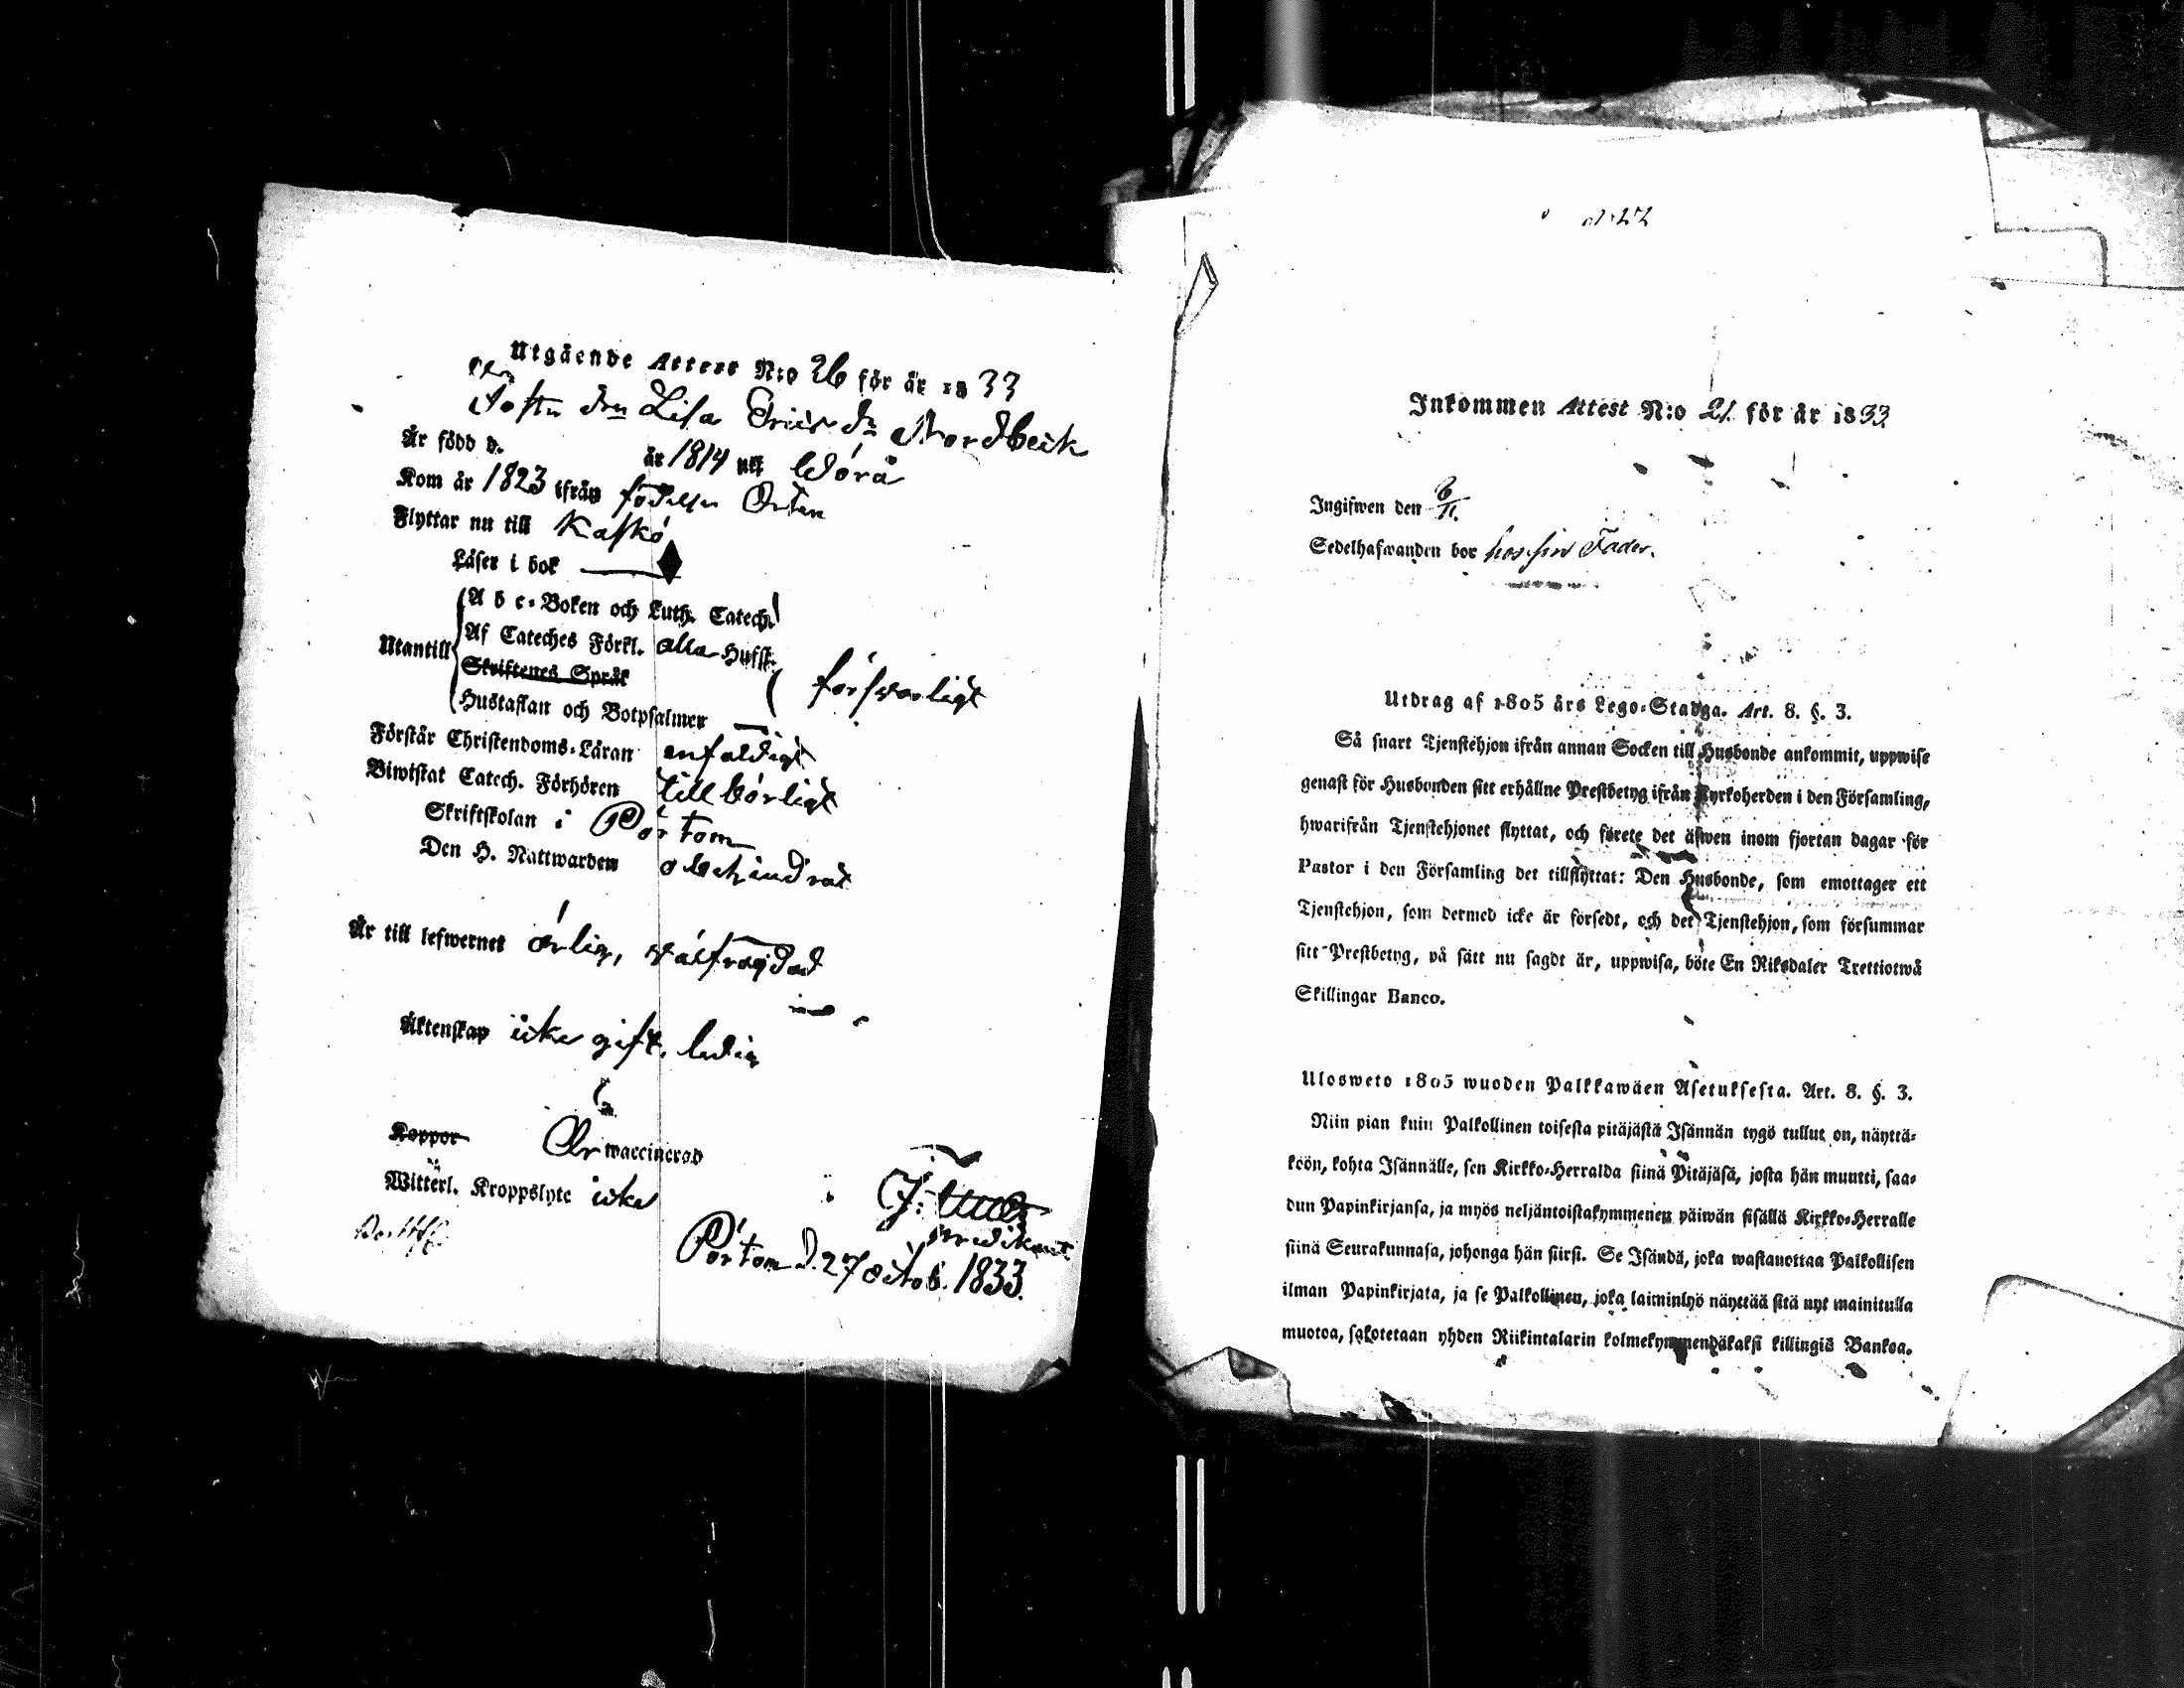 Utgående Attest N:o 26 för år 1833
Lisa Ericsdr Nordbeck
Är född d. år 1814 uti Wörå
Kom år 1823 ifrån födelse Orten
Flyttar nu till Kaskö
Läser i bok
Utantill
A b c-Boken och Luth. Catech.
Af Cateches Förkl. alla Hufst.
Skriftenes Språk
försvarligt
Hustaflan och Botpsalmer
Förstår Christendoms-Läran enfaldigt
Biwistat Catech. Förhören tillbörligt
Skriftskolan i Pörtom
Den H. Nattwarden obehindrat
Är till lefwernet ärlig, välfrägdad
Äktenskap icke gift, ledig
Koppor Är waccinerad
Witterl. Kroppslyte icke
Predikant
Pörtom d. 27 Octob. 1833.
Inkommen Attest N:o 21. för år 1833
Ingifwen den 6/11.
Sedelhafwanden bor hos sin Fader.
Utdrag af 1805 års Lego-Stadga. Art. 8. §. 3.
Så snart Tjenstehjon ifrån annan Socken till Husbonde ankommit, uppwise
genast för Husbonden sitt erhållne Prestbetyg ifrån Kyrkoherden i den Församling,
hwarifrån Tjenstehjonet flyttat, och förete det äfwen inom fjortan dagar för
Pastor i den Församling det tillflyttat: Den Husbonde, som emottager ett
Tjenstehjon, som dermed icke är försedt, och det Tjenstehjon, som försummar
sitt Prestbetyg, på sätt nu sagdt är, uppwisa, böte En Riksdaler Trettiotwå
Skillingar Banco.
Ulosweto 1805 wuoden Palkkawäen Asetuksesta. Art. 8. §. 3.
Niin pian kuin Palkollinen toisesta pitäjästä Isännän tygö tullut on, näyttä-
köön, kohta Isännälle, sen Kirkko-Herralda siinä Pitäjäsä, josta hän muutti, saa-
dun Papinkirjansa, ja myös neljäntoistakymmenen päiwän sisällä Kirkko-Herralle
siinä Seurakunnasa, johonga hän siirsi. Se Isändä, joka wastanottaa Palkollisen
ilman Papinkirjata, ja se Palkollinen, joka laiminlyö näyttää sitä nyt mainitulla
muotoa, sakotetaan yhden Riikintalarin kolmekymmendäkaksi killingis Bankoa.